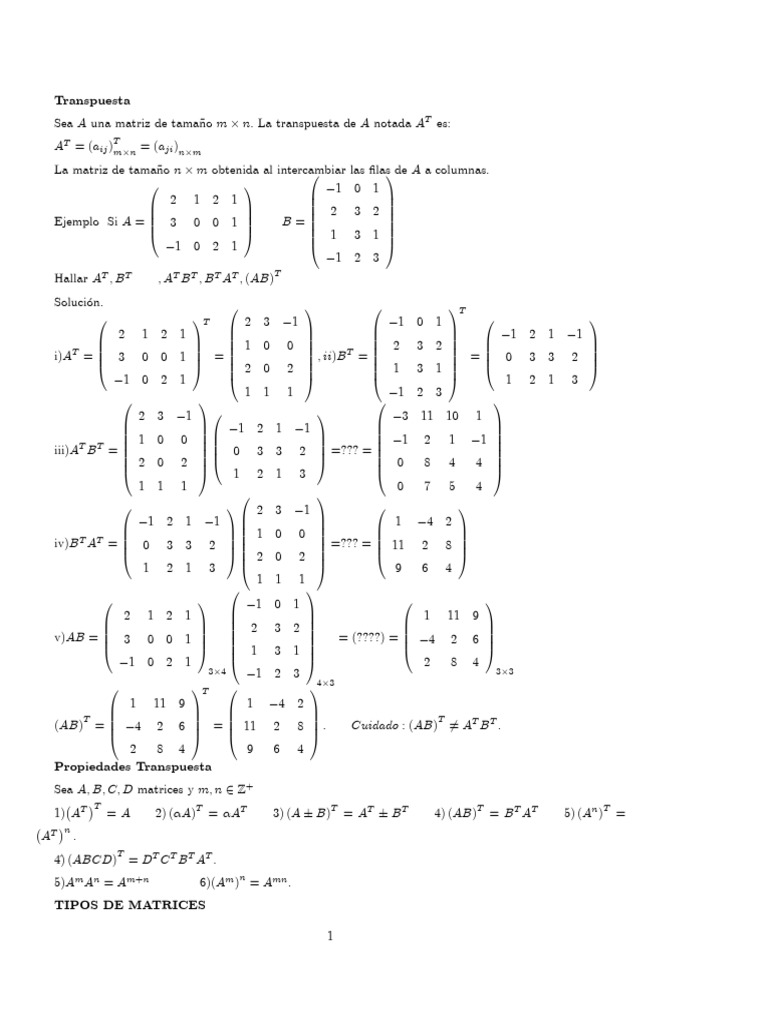 Transpuesta
Sea A una matriz de tamaño m × n. La transpuesta de A notada A^T es:
A^T = (a_{ij})^T_{m×n} = (a_{ji})_{n×m}
La matriz de tamaño n × m obtenida al intercambiar las filas de A a columnas.
Ejemplo Si A = \begin{pmatrix} 2 & 1 & 2 & 1 \\ 3 & 0 & 0 & 1 \\ -1 & 0 & 2 & 1 \end{pmatrix} B = \begin{pmatrix} -1 & 0 & 1 \\ 2 & 3 & 2 \\ 1 & 3 & 1 \\ -1 & 2 & 3 \end{pmatrix}
Hallar A^T, B^T , A^T B^T, B^T A^T, (AB)^T
Solución.
i)A^T = \begin{pmatrix} 2 & 1 & 2 & 1 \\ 3 & 0 & 0 & 1 \\ -1 & 0 & 2 & 1 \end{pmatrix}^T = \begin{pmatrix} 2 & 3 & -1 \\ 1 & 0 & 0 \\ 2 & 0 & 2 \\ 1 & 1 & 1 \end{pmatrix}, ii)B^T = \begin{pmatrix} -1 & 0 & 1 \\ 2 & 3 & 2 \\ 1 & 3 & 1 \\ -1 & 2 & 3 \end{pmatrix}^T = \begin{pmatrix} -1 & 2 & 1 & -1 \\ 0 & 3 & 3 & 2 \\ 1 & 2 & 1 & 3 \end{pmatrix}
iii)A^T B^T = \begin{pmatrix} 2 & 3 & -1 \\ 1 & 0 & 0 \\ 2 & 0 & 2 \\ 1 & 1 & 1 \end{pmatrix} \begin{pmatrix} -1 & 2 & 1 & -1 \\ 0 & 3 & 3 & 2 \\ 1 & 2 & 1 & 3 \end{pmatrix} =??? = \begin{pmatrix} -3 & 11 & 10 & 1 \\ -1 & 2 & 1 & -1 \\ 0 & 8 & 4 & 4 \\ 0 & 7 & 5 & 4 \end{pmatrix}
iv)B^T A^T = \begin{pmatrix} -1 & 2 & 1 & -1 \\ 0 & 3 & 3 & 2 \\ 1 & 2 & 1 & 3 \end{pmatrix} \begin{pmatrix} 2 & 3 & -1 \\ 1 & 0 & 0 \\ 2 & 0 & 2 \\ 1 & 1 & 1 \end{pmatrix} =??? = \begin{pmatrix} 1 & -4 & 2 \\ 11 & 2 & 8 \\ 9 & 6 & 4 \end{pmatrix}
v)AB = \begin{pmatrix} 2 & 1 & 2 & 1 \\ 3 & 0 & 0 & 1 \\ -1 & 0 & 2 & 1 \end{pmatrix}_{3×4} \begin{pmatrix} -1 & 0 & 1 \\ 2 & 3 & 2 \\ 1 & 3 & 1 \\ -1 & 2 & 3 \end{pmatrix}_{4×3} = (????) = \begin{pmatrix} 1 & 11 & 9 \\ -4 & 2 & 6 \\ 2 & 8 & 4 \end{pmatrix}_{3×3}
(AB)^T = \begin{pmatrix} 1 & 11 & 9 \\ -4 & 2 & 6 \\ 2 & 8 & 4 \end{pmatrix}^T = \begin{pmatrix} 1 & -4 & 2 \\ 11 & 2 & 8 \\ 9 & 6 & 4 \end{pmatrix}. Cuidado : (AB)^T ≠ A^T B^T.
Propiedades Transpuesta
Sea A, B, C, D matrices y m, n ∈ ℤ^+
1)(A^T)^T = A 2) (αA)^T = αA^T 3) (A ± B)^T = A^T ± B^T 4) (AB)^T = B^T A^T 5) (A^n)^T =
(A^T)^n.
4) (ABCD)^T = D^T C^T B^T A^T.
5)A^m A^n = A^{m+n} 6)(A^m)^n = A^{mn}.
TIPOS DE MATRICES
1